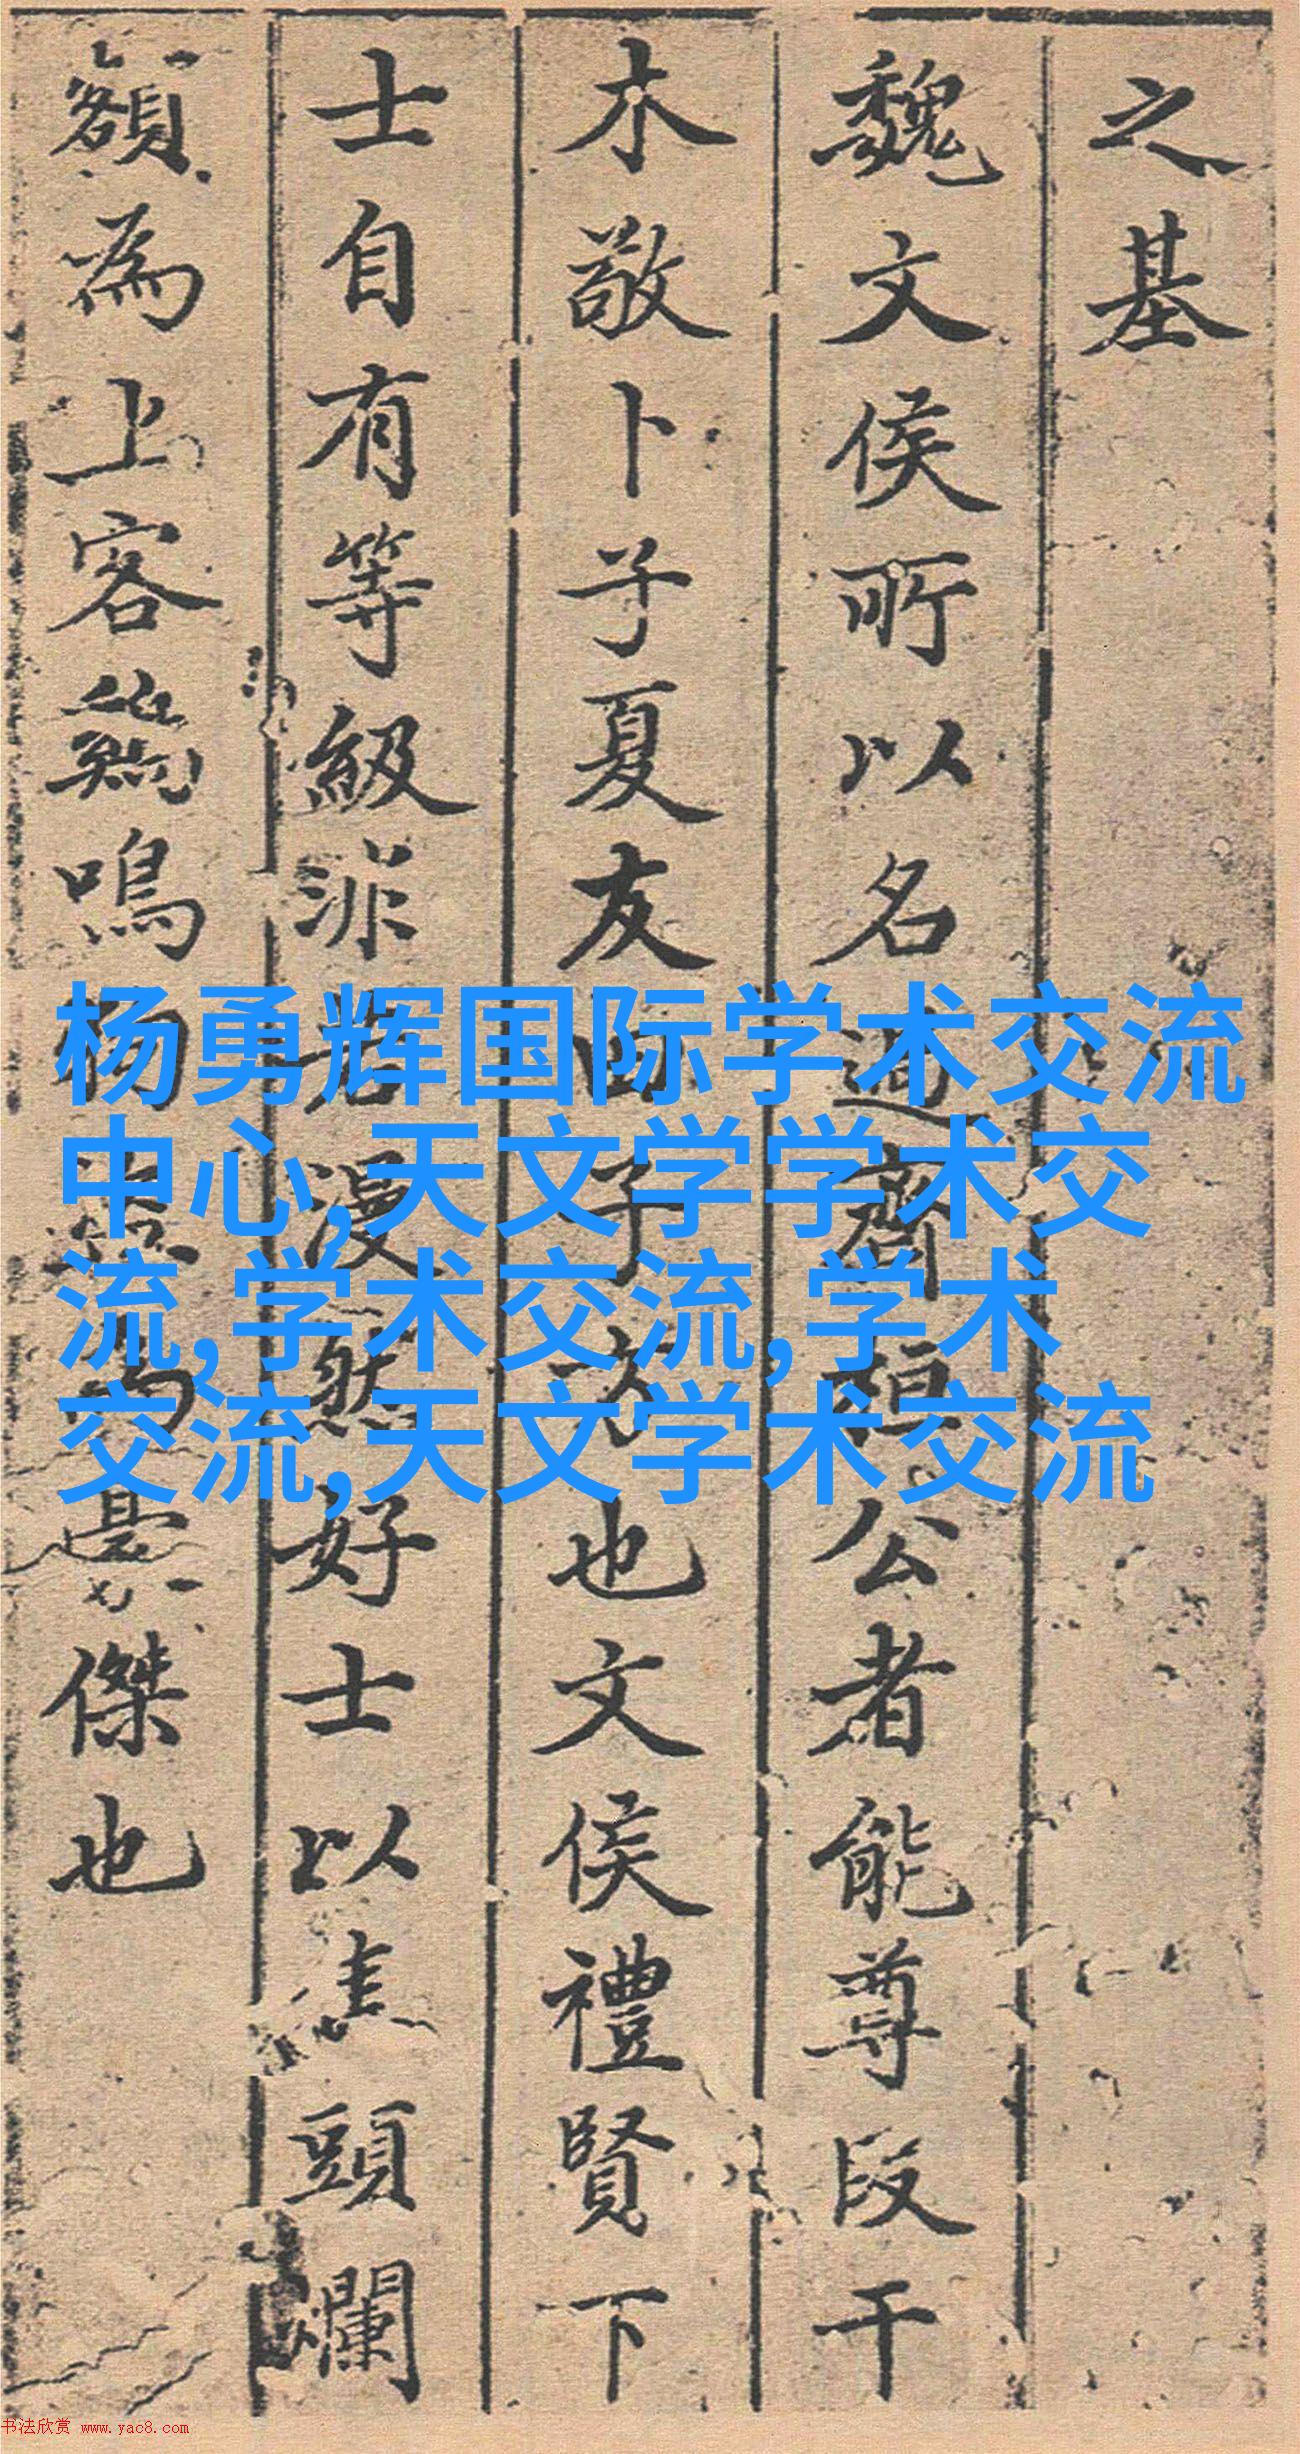 之基
魏文侯所以名過齊桓公者能尊段干
木敬卜子夏友田子方也文侯禮賢下
士自有等級非若漫然好士以焦頭爛
額為上客鷄鳴狗盜為豪傑也
杨勇辉国际学术交流
中心,天文学学术交
流,学术交流,学术
交流,天文学术交流
书法欣赏 www.yac8.com